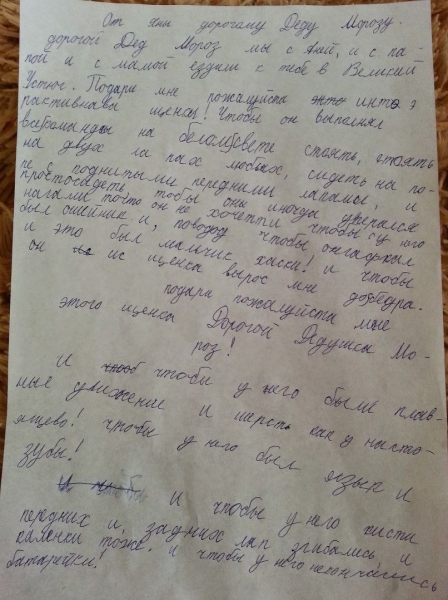 От Яны дорогому Деду Морозу.
дорогой Дед Мороз мы с Яній, и с па-
пой и с мамой ездили к тебе в Великий
Устюг. Подари мне пожалуйста инто э
рактивнава щенка! Чтобы он выполнял
все команды на беломсвете стоять, стоять
на двух ла пах любых, сидеть на по-
пе с поднитыми передними лапами, и
просто сидеть тобы оны иногда уперался
нагами тото он не хочетти чтобы бу у него
был ошейник и, поводод чтобы он гафкал
и это был мальчик хаски! и чтобы
он ис щенка вырос ми доведра.
подари пожалуйста мне
этого щенка Дорогой Дедушка Мо-
роз!
И чтобы у него были плав-
ные движение и шерсть как у насто-
ящево! чтобы у него был язык и
зубы!
и чтобы у него кисти
передних и, задних лап згибались и
каленки тоже. и чтобы у него некончались
батарейки!